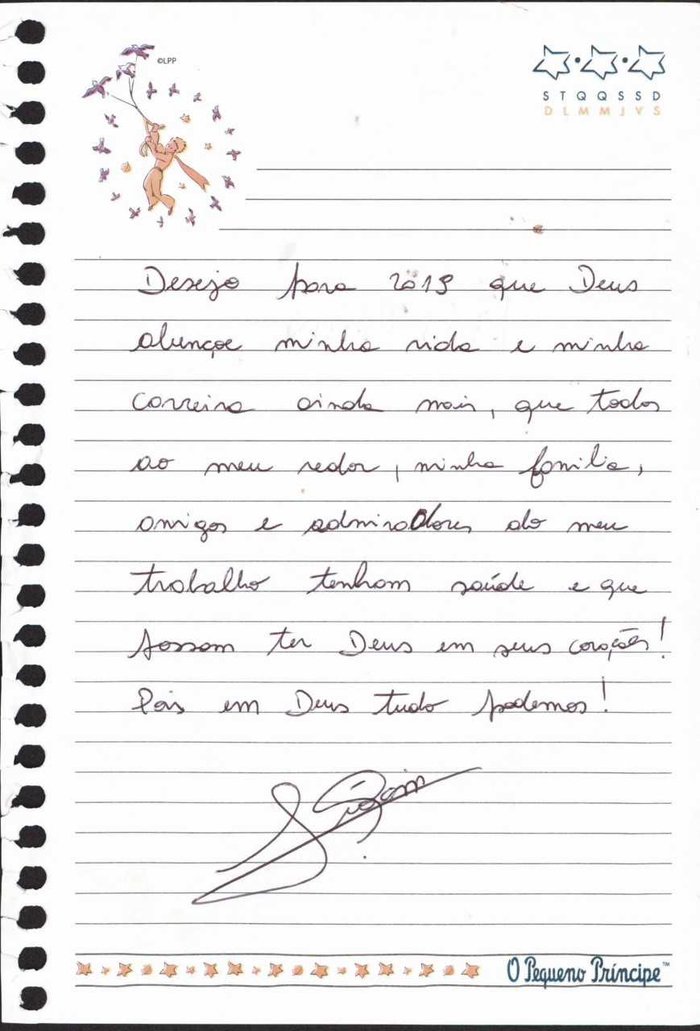 ©LPP
S T Q Q S S D
D L M M J V S
Desejo para 2019 que Deus
abençoe minha vida e minha
carreira ainda mais, que todos
ao meu redor, minha família,
amigos e admiradores do meu
trabalho tenham saúde e que
possam ter Deus em seus corações!
Pois em Deus tudo podemos!
O Pequeno Príncipe™